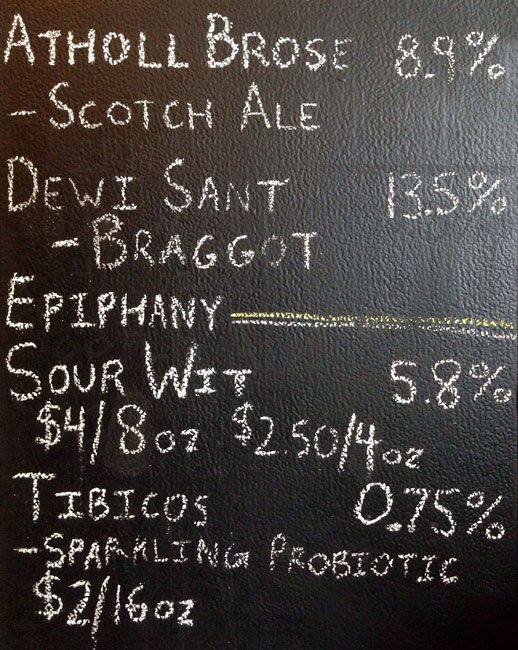 ATHOLL BROSE 8.9%
- SCOTCH ALE
DEWI SANT 13.5%
- BRAGGOT
EPIPHANY
SOUR WIT 5.8%
$4/8oz $2.50/4oz
TIBICOS 0.75%
- SPARKLING PROBIOTIC
$2/16oz